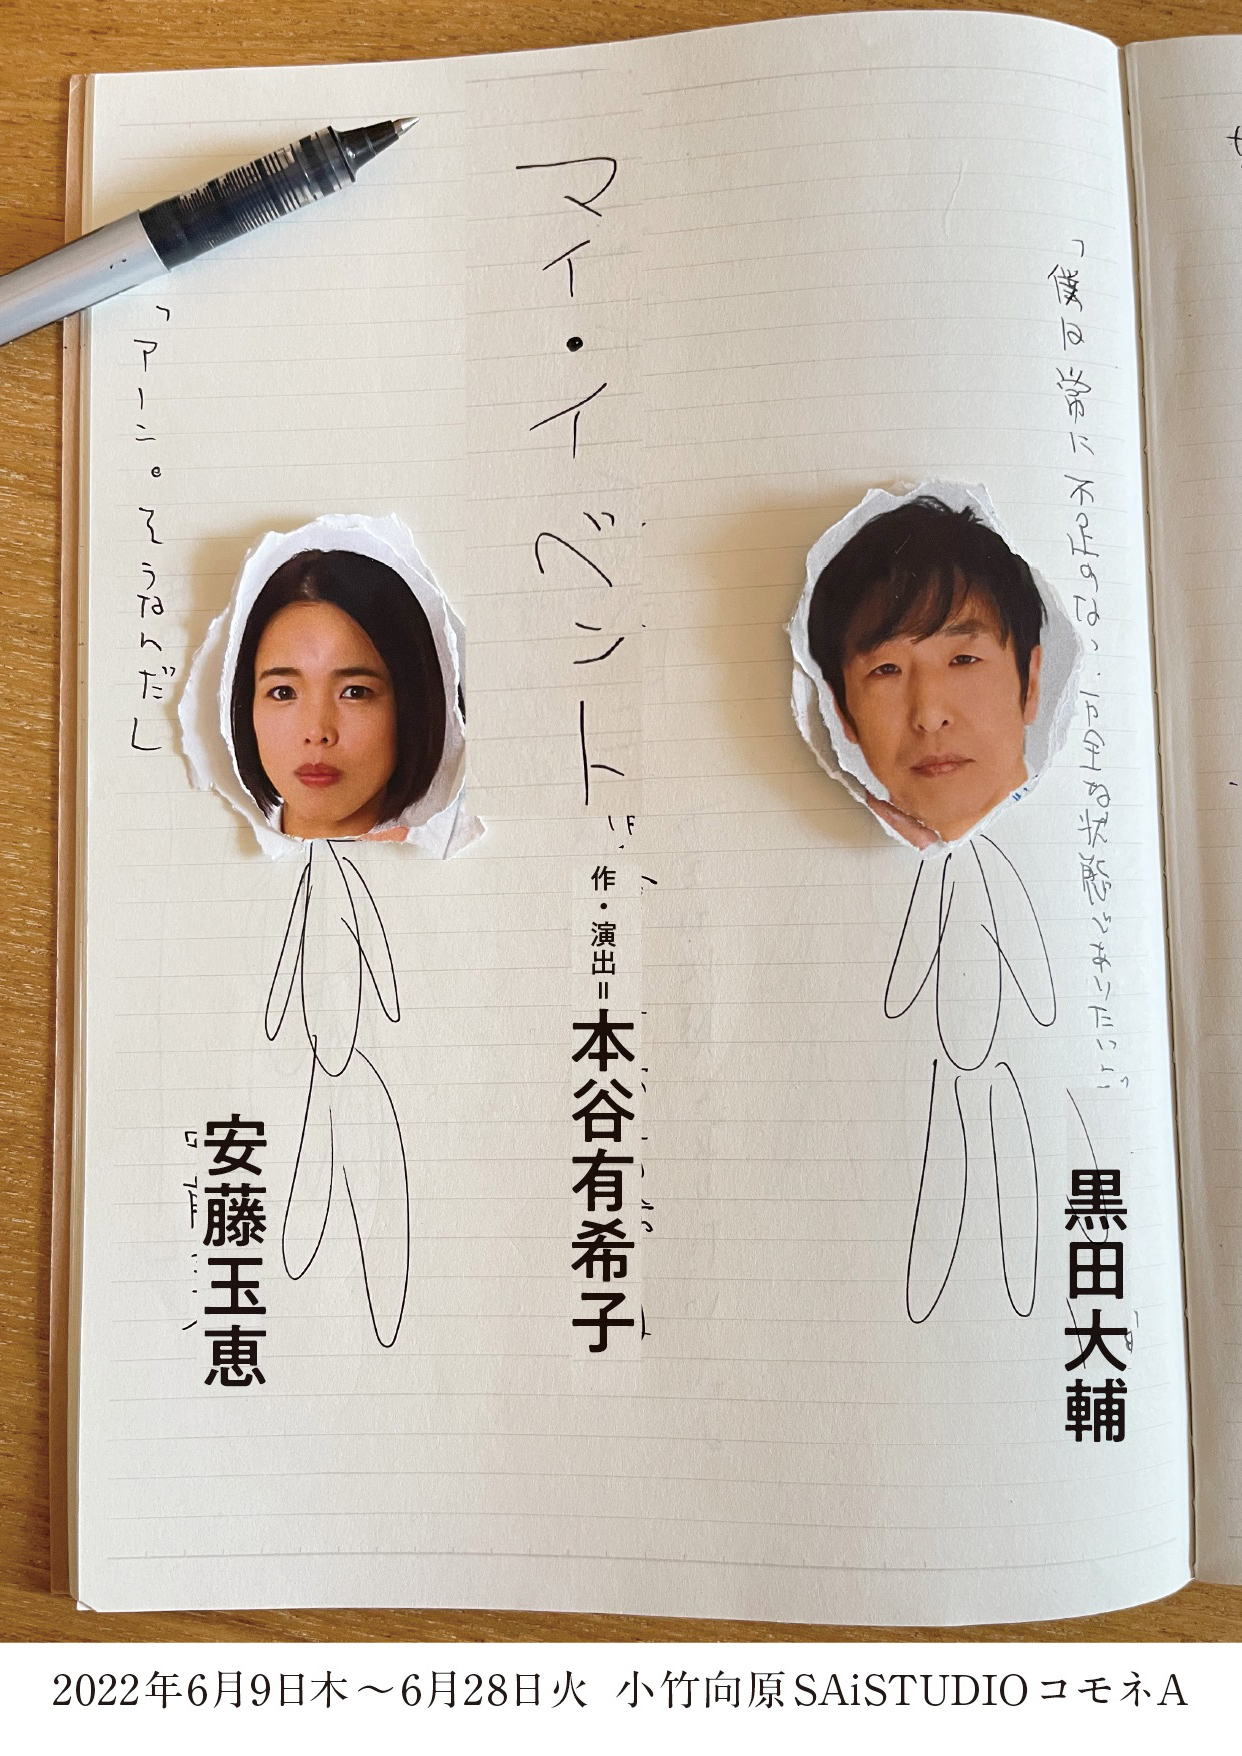 「僕は常に不足のない、万全な状態でありたいよ」
黒田大輔
マイ・イベント
作・演出＝本谷有希子
「アーン。そうなんだ」
安藤玉恵
2022年6月9日木～6月28日火 小竹向原SAiSTUDIOコモネA